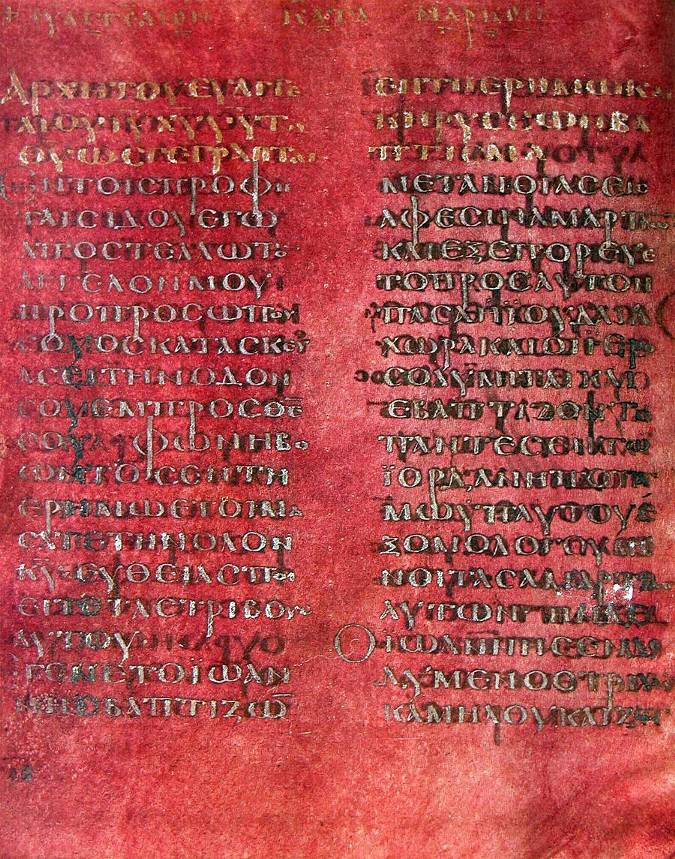 ΕΥΑΓΓΕΛΙΟΝ ΚΑΤΑ ΜΑΡΚΟΝ
ΑΡΧΗΤΟΥΕΥΑΓΓΕ
ΛΙΟΥΙΥΧΥΥΥΤΟΥ
ΘΥΩϹΓΕΓΡΑΠΤΑΙ
ΕΝΤΟΙϹΠΡΟΦΗ
ΤΑΙϹΙΔΟΥΕΓΩ
ΑΠΟϹΤΕΛΛΩΤΟ
ΑΓΓΕΛΟΝΜΟΥ
ΠΡΟΠΡΟϹΩΠΟΥ
ϹΟΥΟϹΚΑΤΑϹΚΕΥ
ΑϹΕΙΤΗΝΟΔΟΝ
ϹΟΥΕΜΠΡΟϹΘΕ
ϹΟΥΦΩΝΗΒΟ
ΩΝΤΟϹΕΝΤΗ
ΕΡΗΜΩΕΤΟΙΜΑ
ϹΑΤΕΤΗΝΟΔΟΝ
ΚΥΕΥΘΕΙΑϹΠΟΙ
ΕΙΤΕΤΑϹΤΡΙΒΟΥϹ
ΑΥΤΟΥ
ΕΓΕΝΕΤΟΪΩΑΝ
ΝΗϹΒΑΠΤΙΖΩ̅
ΕΝΤΗΕΡΗΜΩΚΑΙ
ΚΗΡΥϹϹΩΝΒΑ
ΠΤΙϹΜΑ
ΜΕΤΑΝΟΙΑϹΕΙϹ
ΑΦΕϹΙΝΑΜΑΡΤΙΩ
ΚΑΙΕΞΕΠΟΡΕΥΕ
ΤΟΠΡΟϹΑΥΤΟΝ
ΠΑϹΑΗΪΟΥΔΑΙΑ
ΧΩΡΑΚΑΙΟΙΪΕΡΟ
ϹΟΛΥΜΙΤΑΙΚΑΙ
ΕΒΑΠΤΙΖΟΝΤΟ
ΠΑΝΤΕϹΕΝΤΩ
ΪΟΡΔΑΝΗΠΟΤΑ
ΜΩΥΠΑΥΤΟΥΕ
ΞΟΜΟΛΟΓΟΥΜΕ
ΝΟΙΤΑϹΑΜΑΡΤΙΑϹ
ΑΥΤΩΝΗΝΔΕ
ΟΪΩΑΝΝΗϹΕΝΔΕ
ΔΥΜΕΝΟϹΤΡΙΧΑϹ
ΚΑΜΗΛΟΥΚΑΙΖΩ